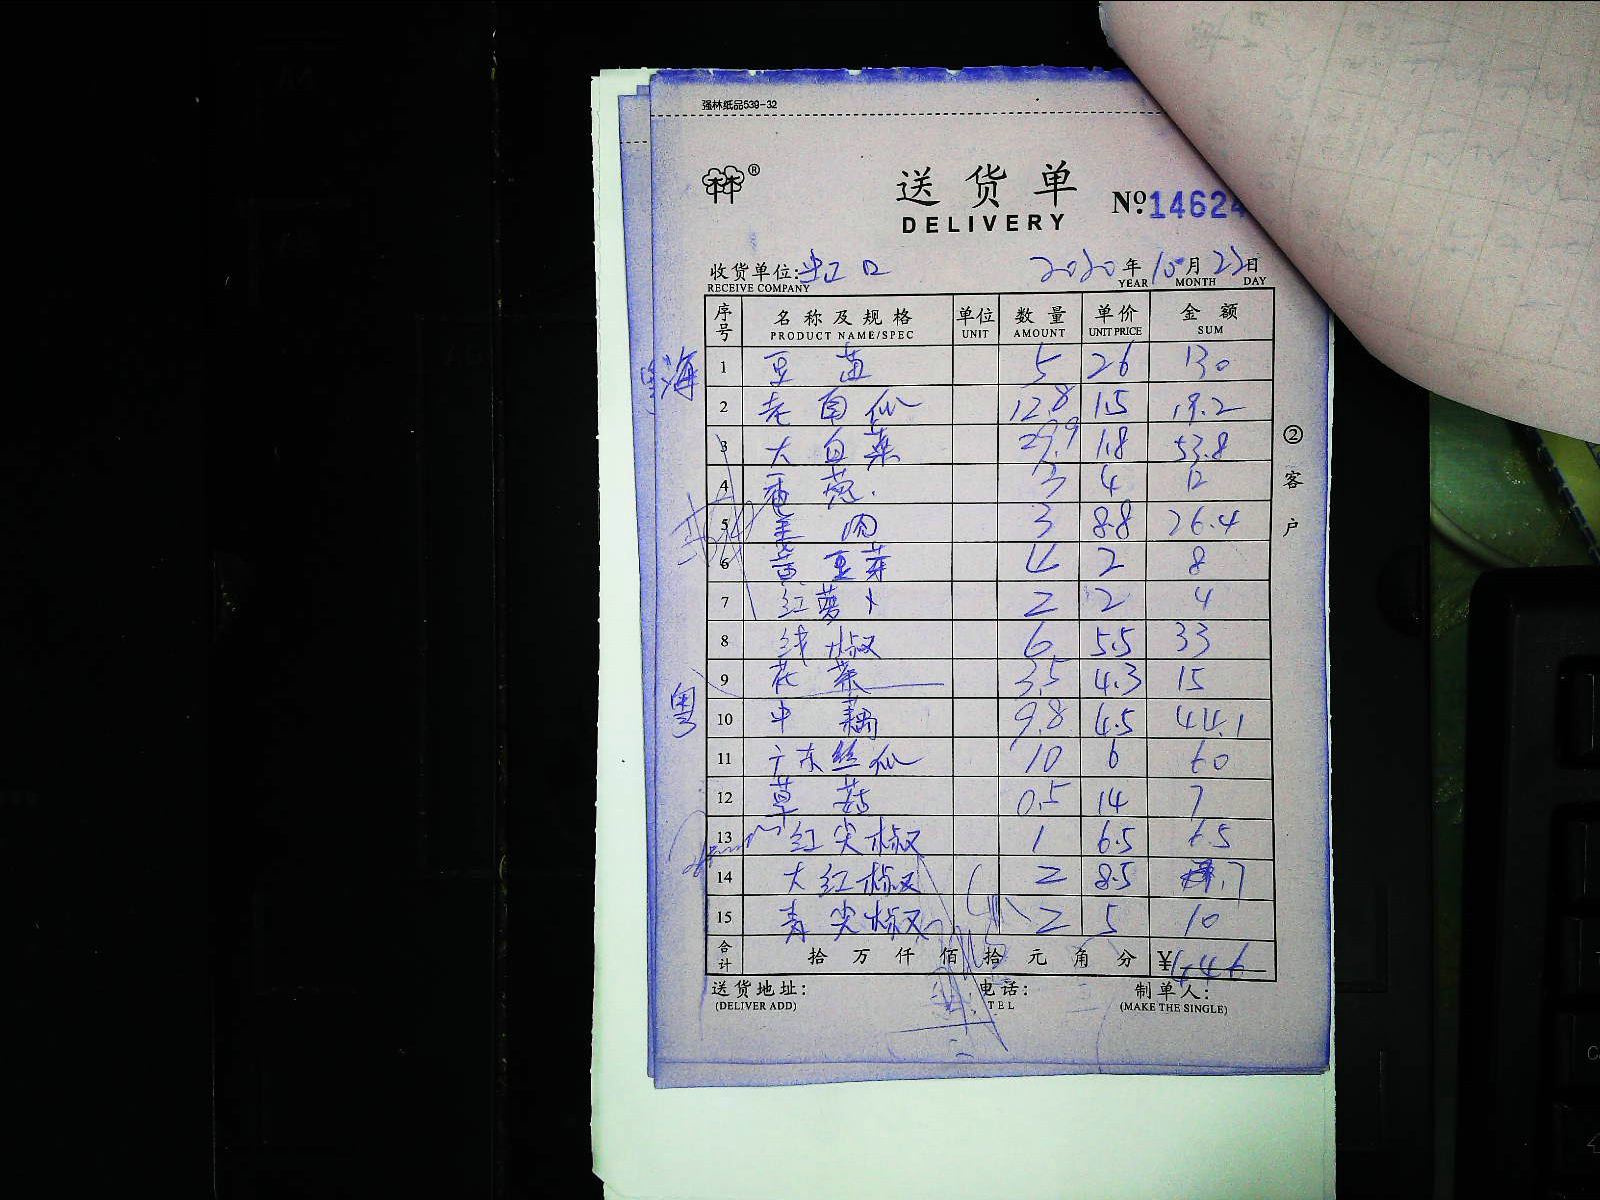 强林纸品539-32
林林®
送货单
DELIVERY
Nº.14624
收货单位: 口 2020年10月23日
RECEIVE COMPANY YEAR MONTH DAY
序号 名称及规格 单位 数量 单价 金额
PRODUCT NAME/SPEC UNIT AMOUNT UNIT PRICE SUM
1 豆苗 5 26 130
海
2 老南仏 12.8 1.5 19.2
3 大白菜 29.9 1.8 53.8
4 香菀. 3 4 12
5 肉 3 8.8 26.4
6 黄豆芽 4 2 8
7 红萝卜 2 2 4
8 线椒 6 5.5 33
9 花菜 3.5 4.3 15
粤
10 中藕 9.8 4.5 44.1
11 广东丝仏 10 6 60
12 草菇 0.5 14 7
13 红尖椒 1 6.5 6.5
14 大红椒 2 8.5 17
15 青尖椒 2 5 10
合计 拾 万 仟 佰 拾 元 角 分 ¥446
送货地址: 电话: 制单人:
(DELIVER ADD) TEL (MAKE THE SINGLE)
②客户